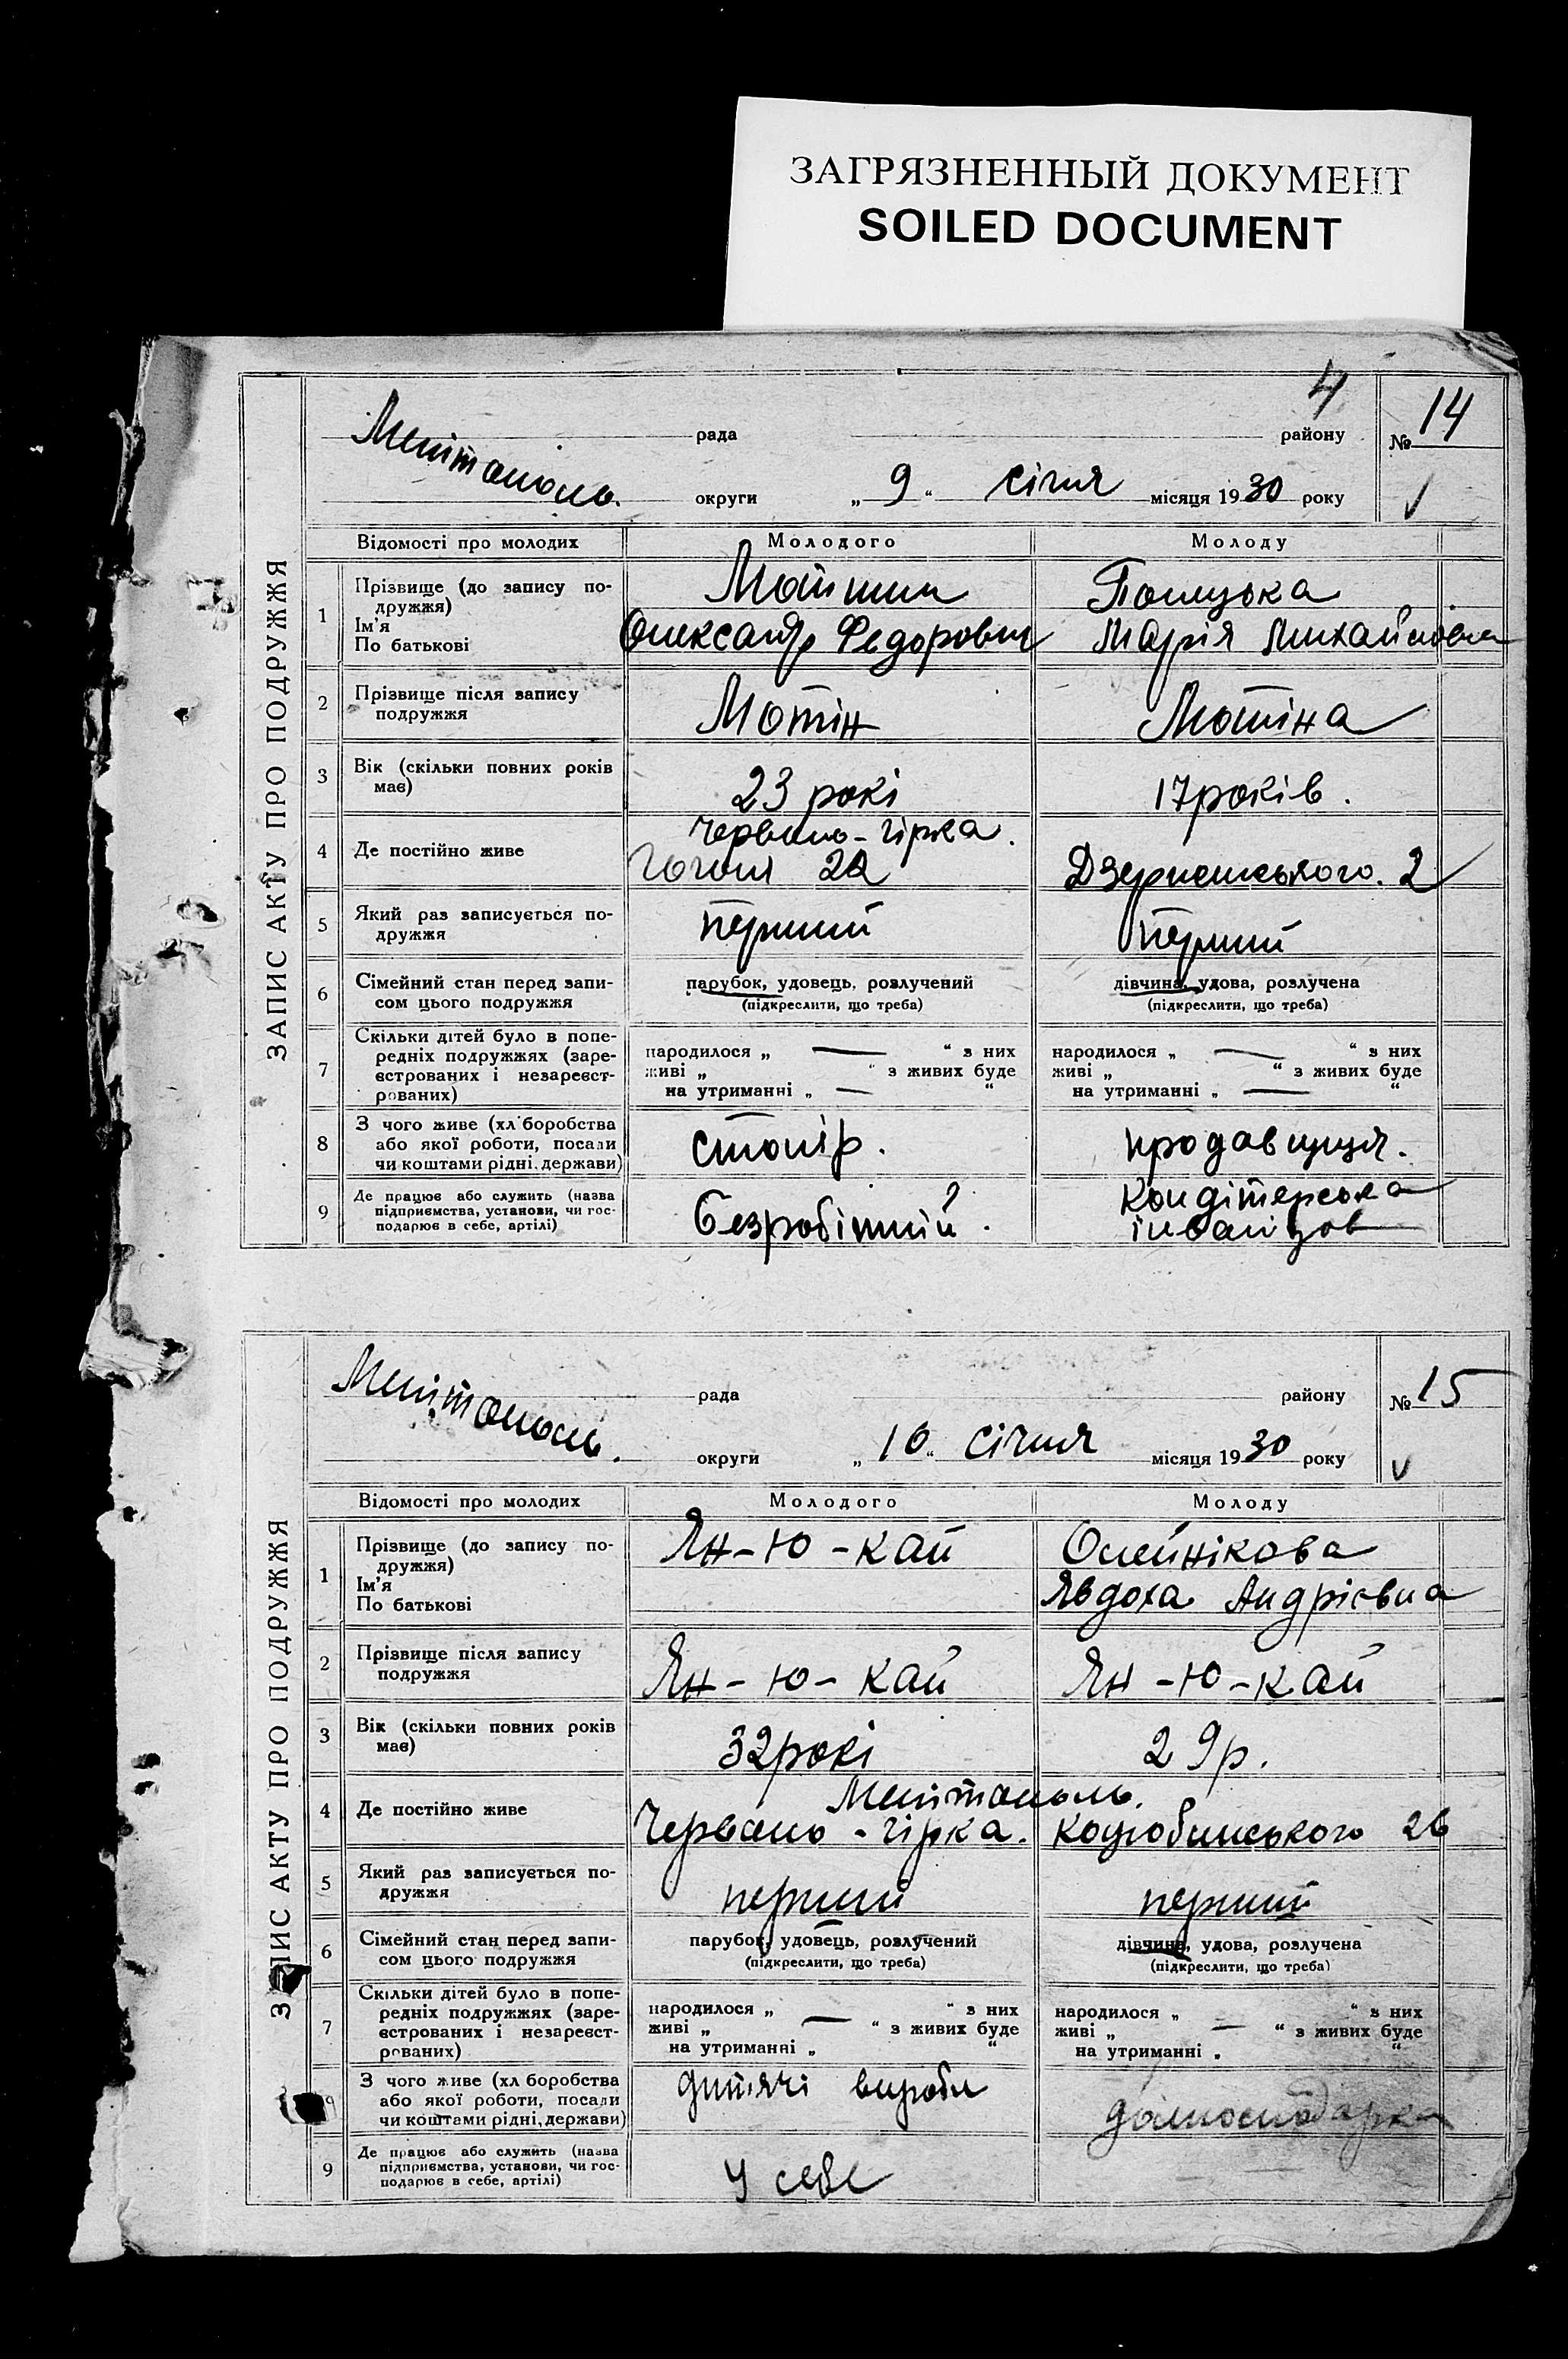 ЗАГРЯЗНЕННЫЙ ДОКУМЕНТ
SOILED DOCUMENT
4
ЗАПИС АКТУ ПРО ПОДРУЖЖЯ
Мелітополь.
рада району № 14
округи „ 9 “ січня місяця 1930 року
Відомості про молодих Молодого Молоду
1 Прізвище (до запису по-
дружжя)
Ім'я
По батькові
Олександр Федорович
Марія Михайловна
2 Прізвище після запису
подружжя
Мотін Мотіна
3 Вік (скільки повних років
має)
23 рокі 17 років.
4 Де постійно живе
Червоно-гірка.
Гоголя 22 Дзержинського. 2
5 Який раз записується по-
дружжя
перший перший
6 Сімейний стан перед запи-
сом цього подружжя
парубок, удовець, розлучений
(підкреслити, що треба)
дівчина, удова, розлучена
(підкреслити, що треба)
7 Скільки дітей було в попе-
редніх подружжях (заре-
єстрованих і незареєст-
рованих)
народилося „ — “ з них
живі „ “ з живих буде
на утриманні „ — “
народилося „ — “ з них
живі „ “ з живих буде
на утриманні „ — “
8 З чого живе (хл боробства
або якої роботи, посади
чи коштами рідні, держави)
столяр. продавщиця.
9 Де працює або служить (назва
підприємства, установи, чи гос-
подарює в себе, артілі)
безробітний.
кондітерська
інвалідов
ЗАПИС АКТУ ПРО ПОДРУЖЖЯ
Мелітополь.
рада району № 15
округи „ 10 “ січня місяця 1930 року
Відомості про молодих Молодого Молоду
1 Прізвище (до запису по-
дружжя)
Ім'я
По батькові
Ян-Ю-Кай
Олейнікова
Явдоха Андрієвна
2 Прізвище після запису
подружжя
Ян-Ю-Кай Ян-Ю-Кай
3 Вік (скільки повних років
має)
32 рокі 29 р.
4 Де постійно живе
Мелітополь.
Червоно-гірка. Коцюбинського 26
5 Який раз записується по-
дружжя
перший перший
6 Сімейний стан перед запи-
сом цього подружжя
парубок, удовець, розлучений
(підкреслити, що треба)
дівчина, удова, розлучена
(підкреслити, що треба)
7 Скільки дітей було в попе-
редніх подружжях (заре-
єстрованих і незареєст-
рованих)
народилося „ “ з них
живі „ — “ з живих буде
на утриманні „ “
народилося „ “ з них
живі „ — “ з живих буде
на утриманні „ “
З чого живе (хл боробства
або якої роботи, посади
чи коштами рідні, держави)
дитячі вироби домгосподарка
9 Де працює або служить (назва
підприємства, установи, чи гос-
подарює в себе, артілі)
у себе